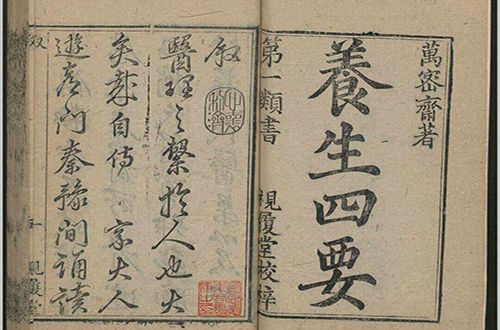 萬密齋著
養生四要
第一類書 視履堂校梓
叙
醫理之繫於人也大
矣哉自侍家大人
遊唐門秦豫間誦讀
叙 一 視履堂